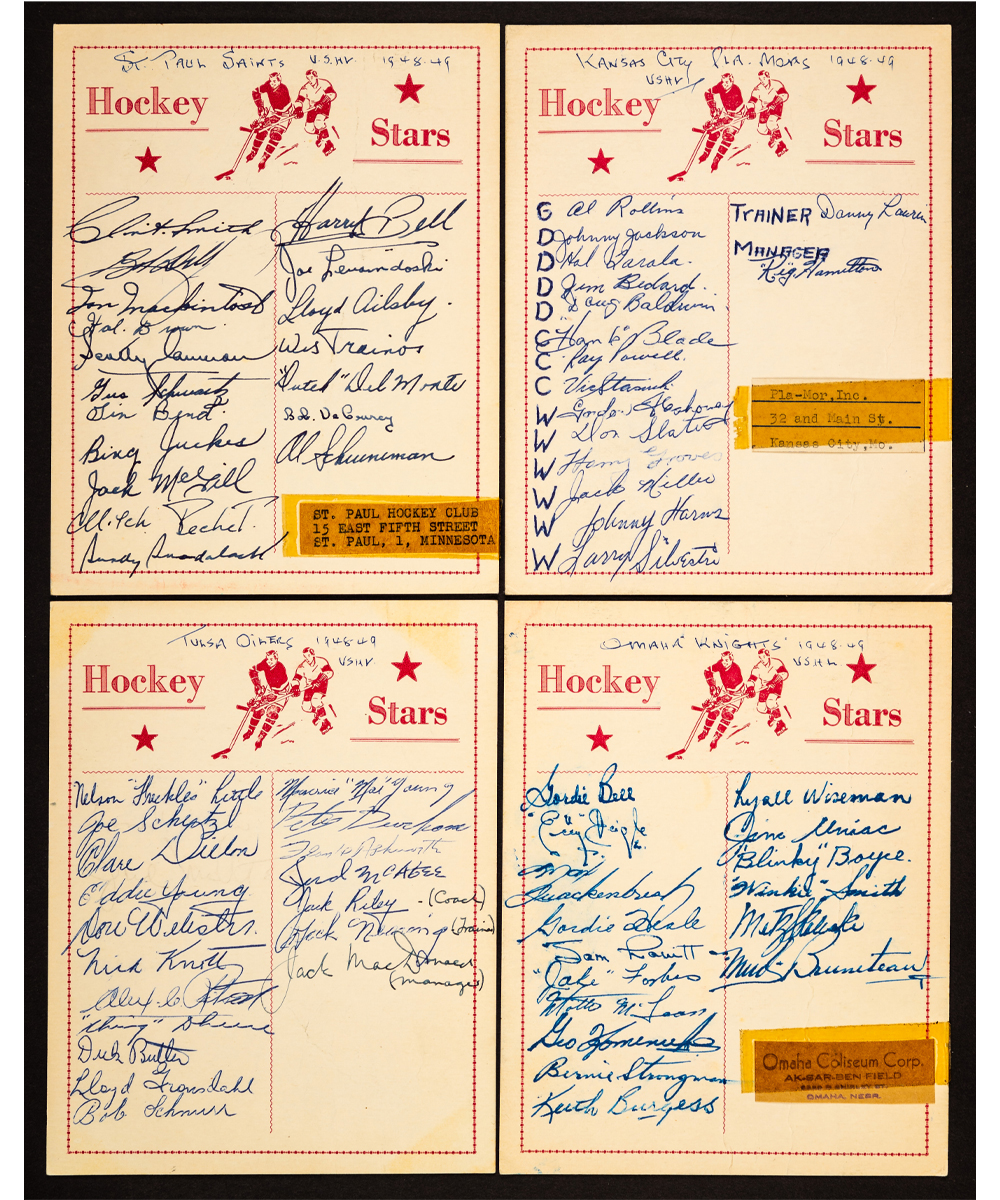 St. Paul Saints U.S.H.L. 1948-49
Hockey
Stars
Clint Smith
Ian MacKintosh
Hal. Brown
Scotty Cameron
Gus Schwartz
Bing Juckes
Jack McGill
Mitch Pechet.
Harry Bell
Joe Levandoski
Lloyd Ailsby.
Wes Trainor
"Dutch" Del Monte
Bob DeCourcy
Al Scheuneman
ST. PAUL HOCKEY CLUB
15 EAST FIFTH STREET
ST. PAUL, 1, MINNESOTA
Kansas City Pla-Mors 1948-49
USHL
Hockey
Stars
G Al Rollins
D Johnny Jackson
D Hal Tarala.
D Jim Bedard.
D Doug Baldwin
C "Hank" Blade
C Ray Powell.
C Vic Stasiuk
W
W Don Slater
W Harry Groves
W Jack Miller
W Johnny Harms
W Larry Silvestri
TRAINER Danny Laurin
MANAGER
"Reg" Hamilton
Pla-Mor,Inc.
32 and Main St.
Kansas City,Mo.
Tulsa Oilers 1948-49
USHL
Hockey
Stars
Nelson "Heckles" Little
Joe Schertzl
Clare Dillon
Eddie Young
Don Webster.
Nick Knott
Dick Butler
Lloyd Gronsdahl
Bob Schnurr
Maurice "Mai" Young
Pete Durham
Jud McAtee
Jack Riley - (Coach)
(Trainer)
Jack MacDonald
(manager)
Omaha Knights 1948-49
USHL
Hockey
Stars
Gordie Bell
Max
Quackenbush
Gordie Heale
Sam Lavitt
"Jake" Forbes
Motto McLean
Geo Homeniuk
Bernie Strongman
Keith Burgess
Lyall Wiseman
Gene Uniac
"Blinky" Boyce.
"Winkie" Smith
Mud Bruneteau
Omaha Coliseum Corp.
AK-SAR-BEN FIELD
OMAHA, NEBR.